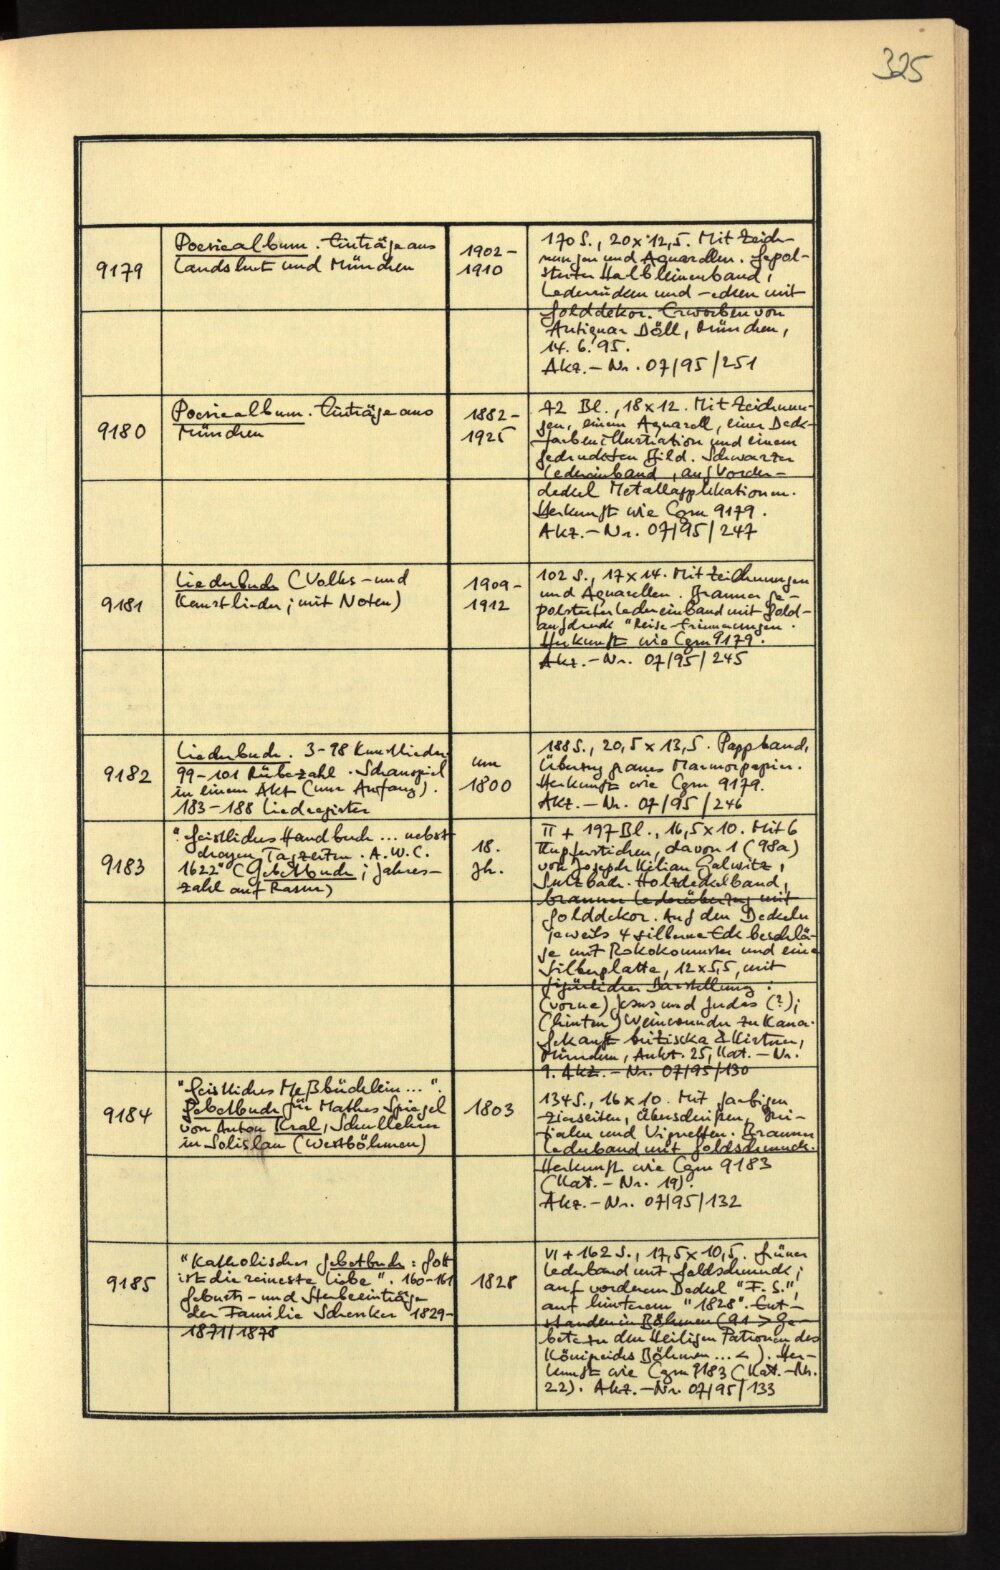 325
9179
Poesiealbum. Einträge aus
Landshut und München
1902-
1910
170 S., 20 x 12,5. Mit Zeich-
nungen und Aquarellen. Gepol-
sterter Halbleinenband,
Lederrücken und -ecken mit
Golddekor. Erworben von
Antiquar Döll, München,
14. 6. 95.
Akz.-Nr. 07/95/251
9180
Poesiealbum. Einträge aus
München
1882-
1925
42 Bl., 18 x 12. Mit Zeichnun-
gen, einem Aquarell, einer Deck-
farbenillustration und einem
gedruckten Bild. Schwarzer
Ledereinband, auf Vorder-
deckel Metallapplikationen.
Herkunft wie Cgm 9179.
Akz.-Nr. 07/95/247
9181
Liederbuch (Volks- und
Kunstlieder; mit Noten)
1909-
1912
102 S., 17 x 14. Mit Zeichnungen
und Aquarellen. Brauner ge-
polsterter Ledereinband mit Gold-
aufdruck "Reise-Erinnerungen.
Herkunft wie Cgm 9179.
Akz.-Nr. 07/95/245
9182
Liederbuch. 3-98 Kunstlieder.
99-101 Rübezahl. Schauspiel
in einem Akt (nur Anfang).
183-188 Liedregister
um
1800
188 S., 20,5 x 13,5. Pappband,
Überzug graues Marmorpapier.
Herkunft wie Cgm 9179.
Akz.-Nr. 07/95/246
9183
"Geistliches Handbuch ... nebst
dreyen Tagzeiten. A.W.C.
1622" (Gebetbuch; Jahres-
zahl auf Rasur)
18.
Jh.
II + 197 Bl., 16,5 x 10. Mit 6
Kupferstichen, davon 1 (98a)
von Joseph Kilian Galwitz,
Sulzbach. Holzdeckelband,
brauner Lederüberzug mit
Golddekor. Auf den Deckeln
jeweils 4 silberne Eckbeschlä-
ge mit Rokokomuster und eine
Silberplatte, 12 x 5,5, mit
figürlicher Darstellung:
(vorne) Jesus und Judas (?);
(hinten) Weinwunder zu Kana.
Gekauft bei Zisska & Kistner,
München, Aukt. 25, Kat.-Nr.
9. Akz.-Nr. 07/95/130
9184
"Geistliches Meßbüchlein ...".
Gebetbuch für Mathes Spiegel
von Anton Kral, Schullehrer
in Solislau (Westböhmen)
1803
134 S., 16 x 10. Mit farbigen
Zierseiten, Überschriften, Ini-
tialen und Vignetten. Brauner
Lederband mit Goldschmuck.
Herkunft wie Cgm 9183
(Kat.-Nr. 19).
Akz.-Nr. 07/95/132
9185
"Katholisches Gebetbuch: Gott
ist die reineste Liebe". 160-161
Geburts- und Sterbeeinträge
der Familie Schenker 1829-
1871/1878
1828
VI + 162 S., 17,5 x 10,5. Grüner
Lederband mit Goldschmuck;
auf vorderem Deckel "F. S.",
auf hinterem "1828". Ent-
standen in Böhmen (91 > Ge-
bete zu den Heiligen Patronen des
Königreichs Böhmen ... <). Her-
kunft wie Cgm 9183 (Kat.-Nr.
22). Akz.-Nr. 07/95/133